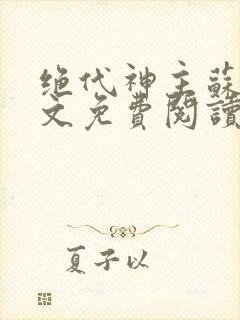 绝代神主蘇
文免費閱讀
夏子以